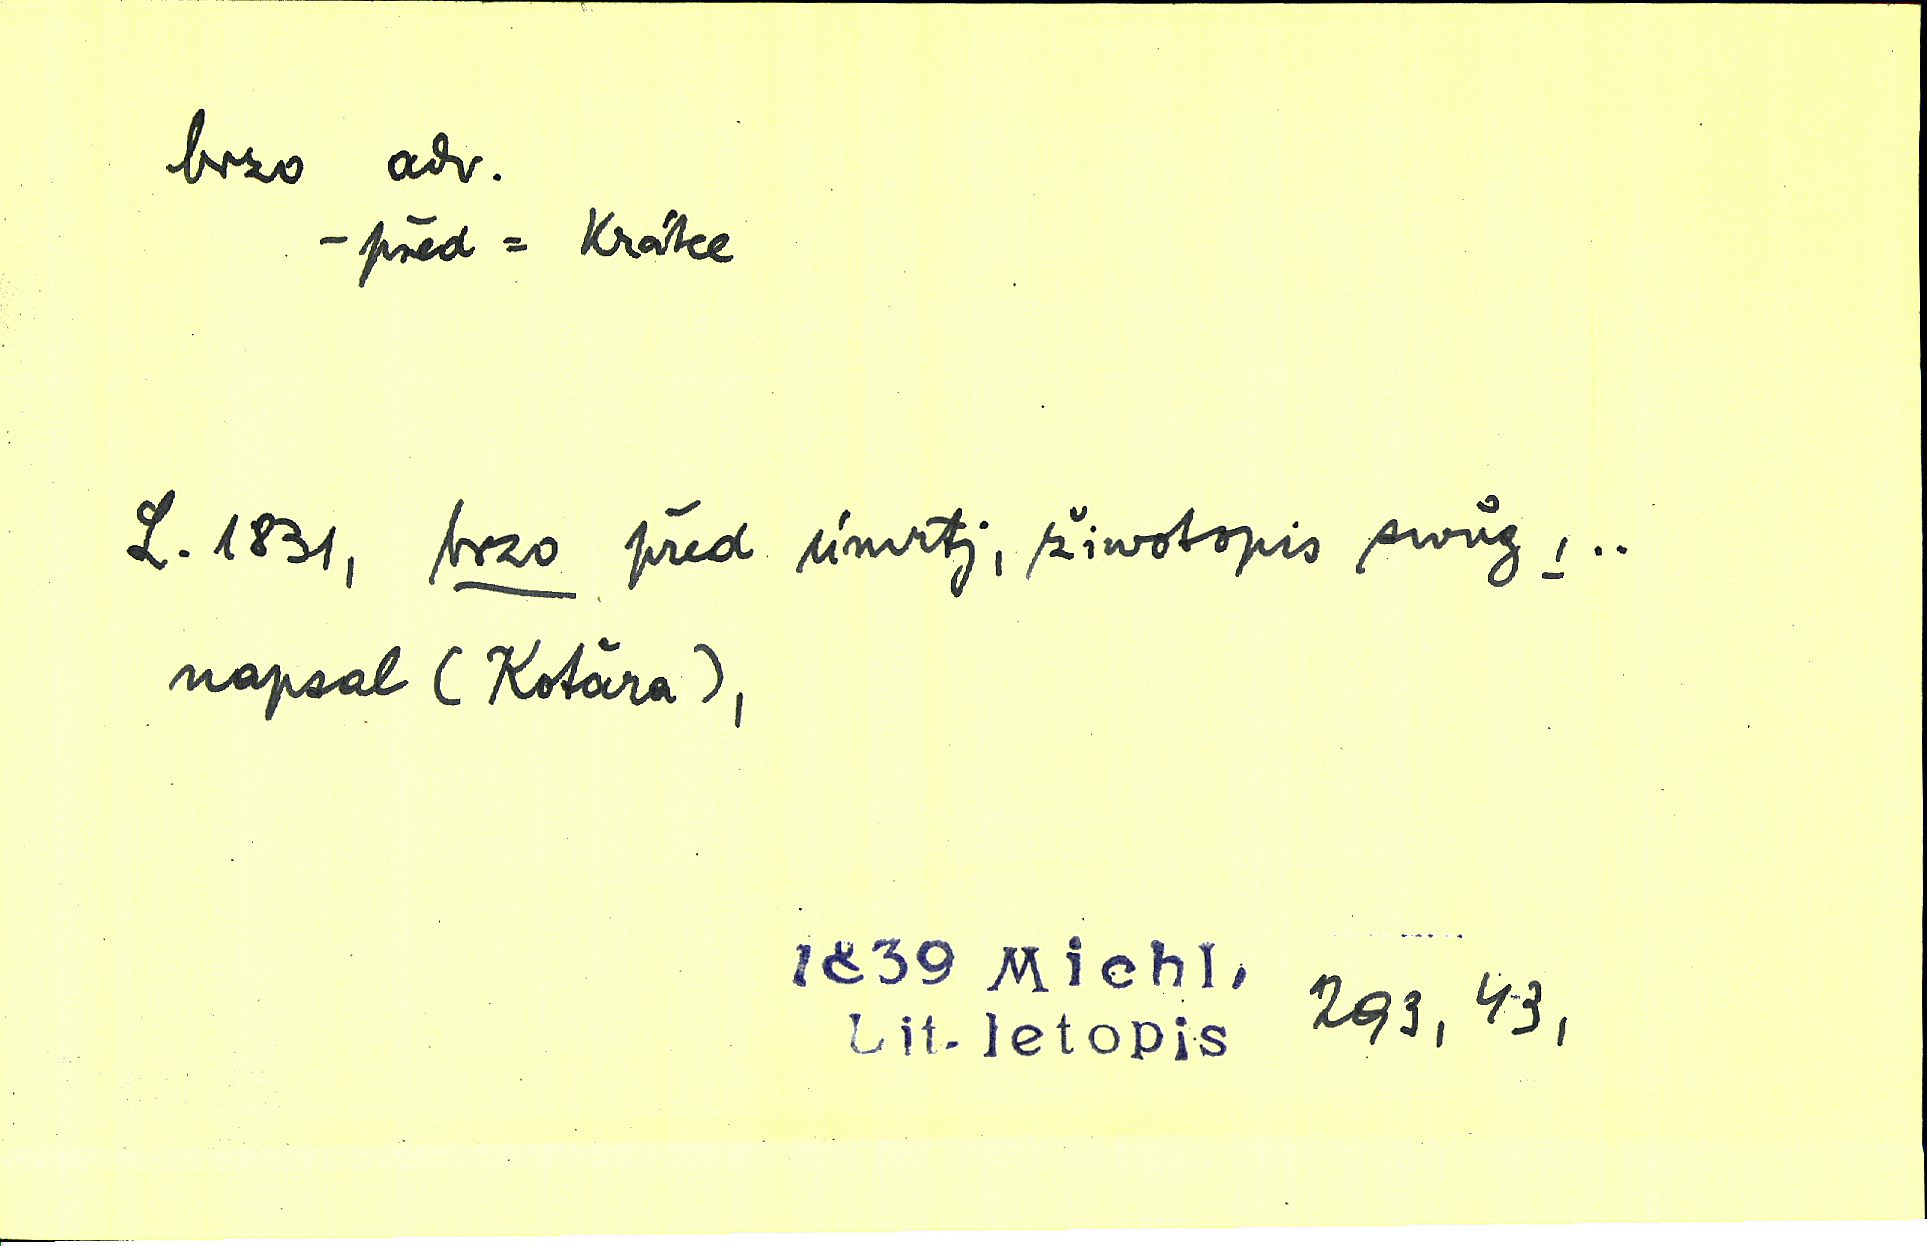 brzo adv.
- před = Krátce
L. 1831, brzo před úmrtj, žiwotopis swůg, ...
napsal (Kotára),
1839 Michl,
Lit. letopis 293, 43,